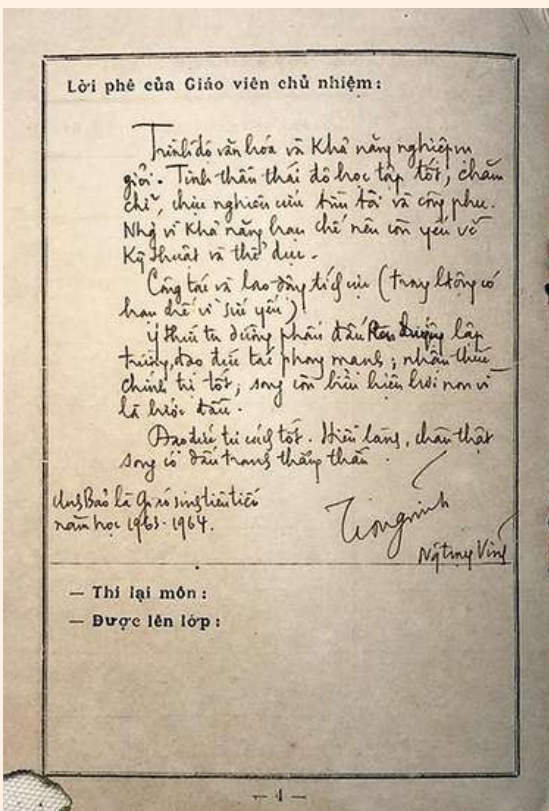 Lời phê của Giáo viên chủ nhiệm:
Trình độ văn hóa và Khả năng nghiệp vụ
giỏi. Tinh thần thái độ học tập tốt; chăm
chỉ, chịu nghiên cứu tìm tòi và công phu.
vì Khả năng hạn chế nên còn yếu về
Kỹ thuật và thể dục.
Công tác và lao động tích cực (trong lđộng có
hạn chế vì sức yếu)
Ý thức tu dưỡng phấn đấu lập
trường, đạo đức tác phong mạnh; nhận thức
chính trị tốt; song còn biểu hiện hơi non vì
là bước đầu.
Đạo đức tư cách tốt. Hiền lành, chân thật
song có đấu tranh thẳng thắn.
Bảo là tiên tiến
năm học 1963-1964.
— Thi lại môn:
— Được lên lớp:
— 4 —